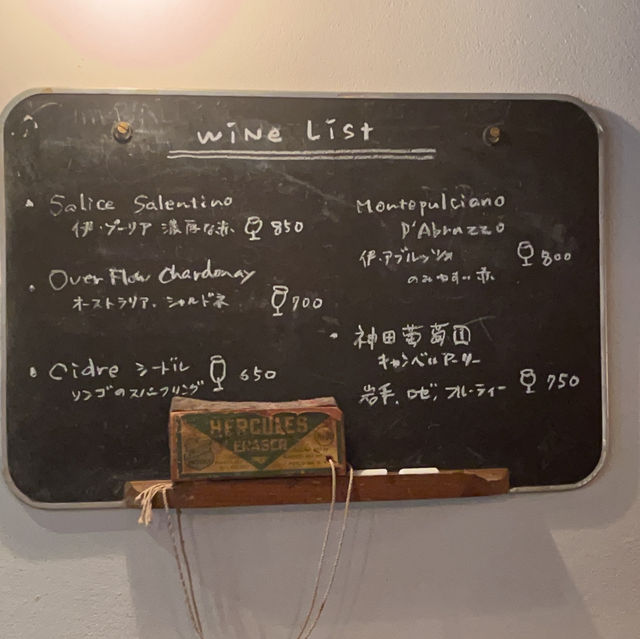 wine List
Salice Salentino
伊・プーリア 濃厚な赤 850
Over Flow Chardonnay
オーストラリア、シャルドネ 700
Cidre シードル
リンゴのスパークリング 650
Montepulciano
D'Abruzzo
伊・アブルッツォ 800
のみやすい赤
神田葡萄園
キャンベルアーリー
岩手、ロゼ、フルーティー 750
HERCULES
ERASER